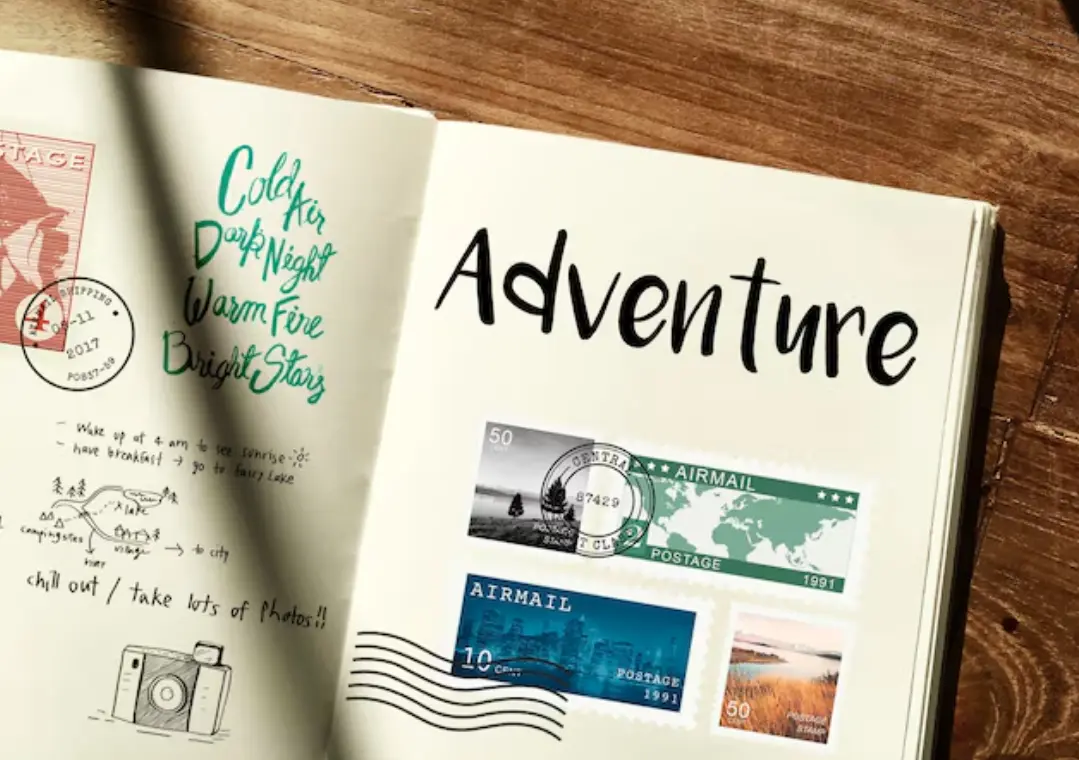 STAGE
4
SHIPPING
05-11
2017
POB37-59
Cold
Air
Dark Night
Warm Fire
Bright Stars
- Wake up at 4 am to see sunrise
- have breakfast → go to fairy Lake
Lake
camping sites
village
river
→ to city
chill out / take lots of Photos!!
Adventure
50
CENTRAL
87429
POSTAGE
STAMP
AIRMAIL
POSTAGE
1991
AIRMAIL
10 CENT
POSTAGE
1991
50
POSTAGE
STAMP